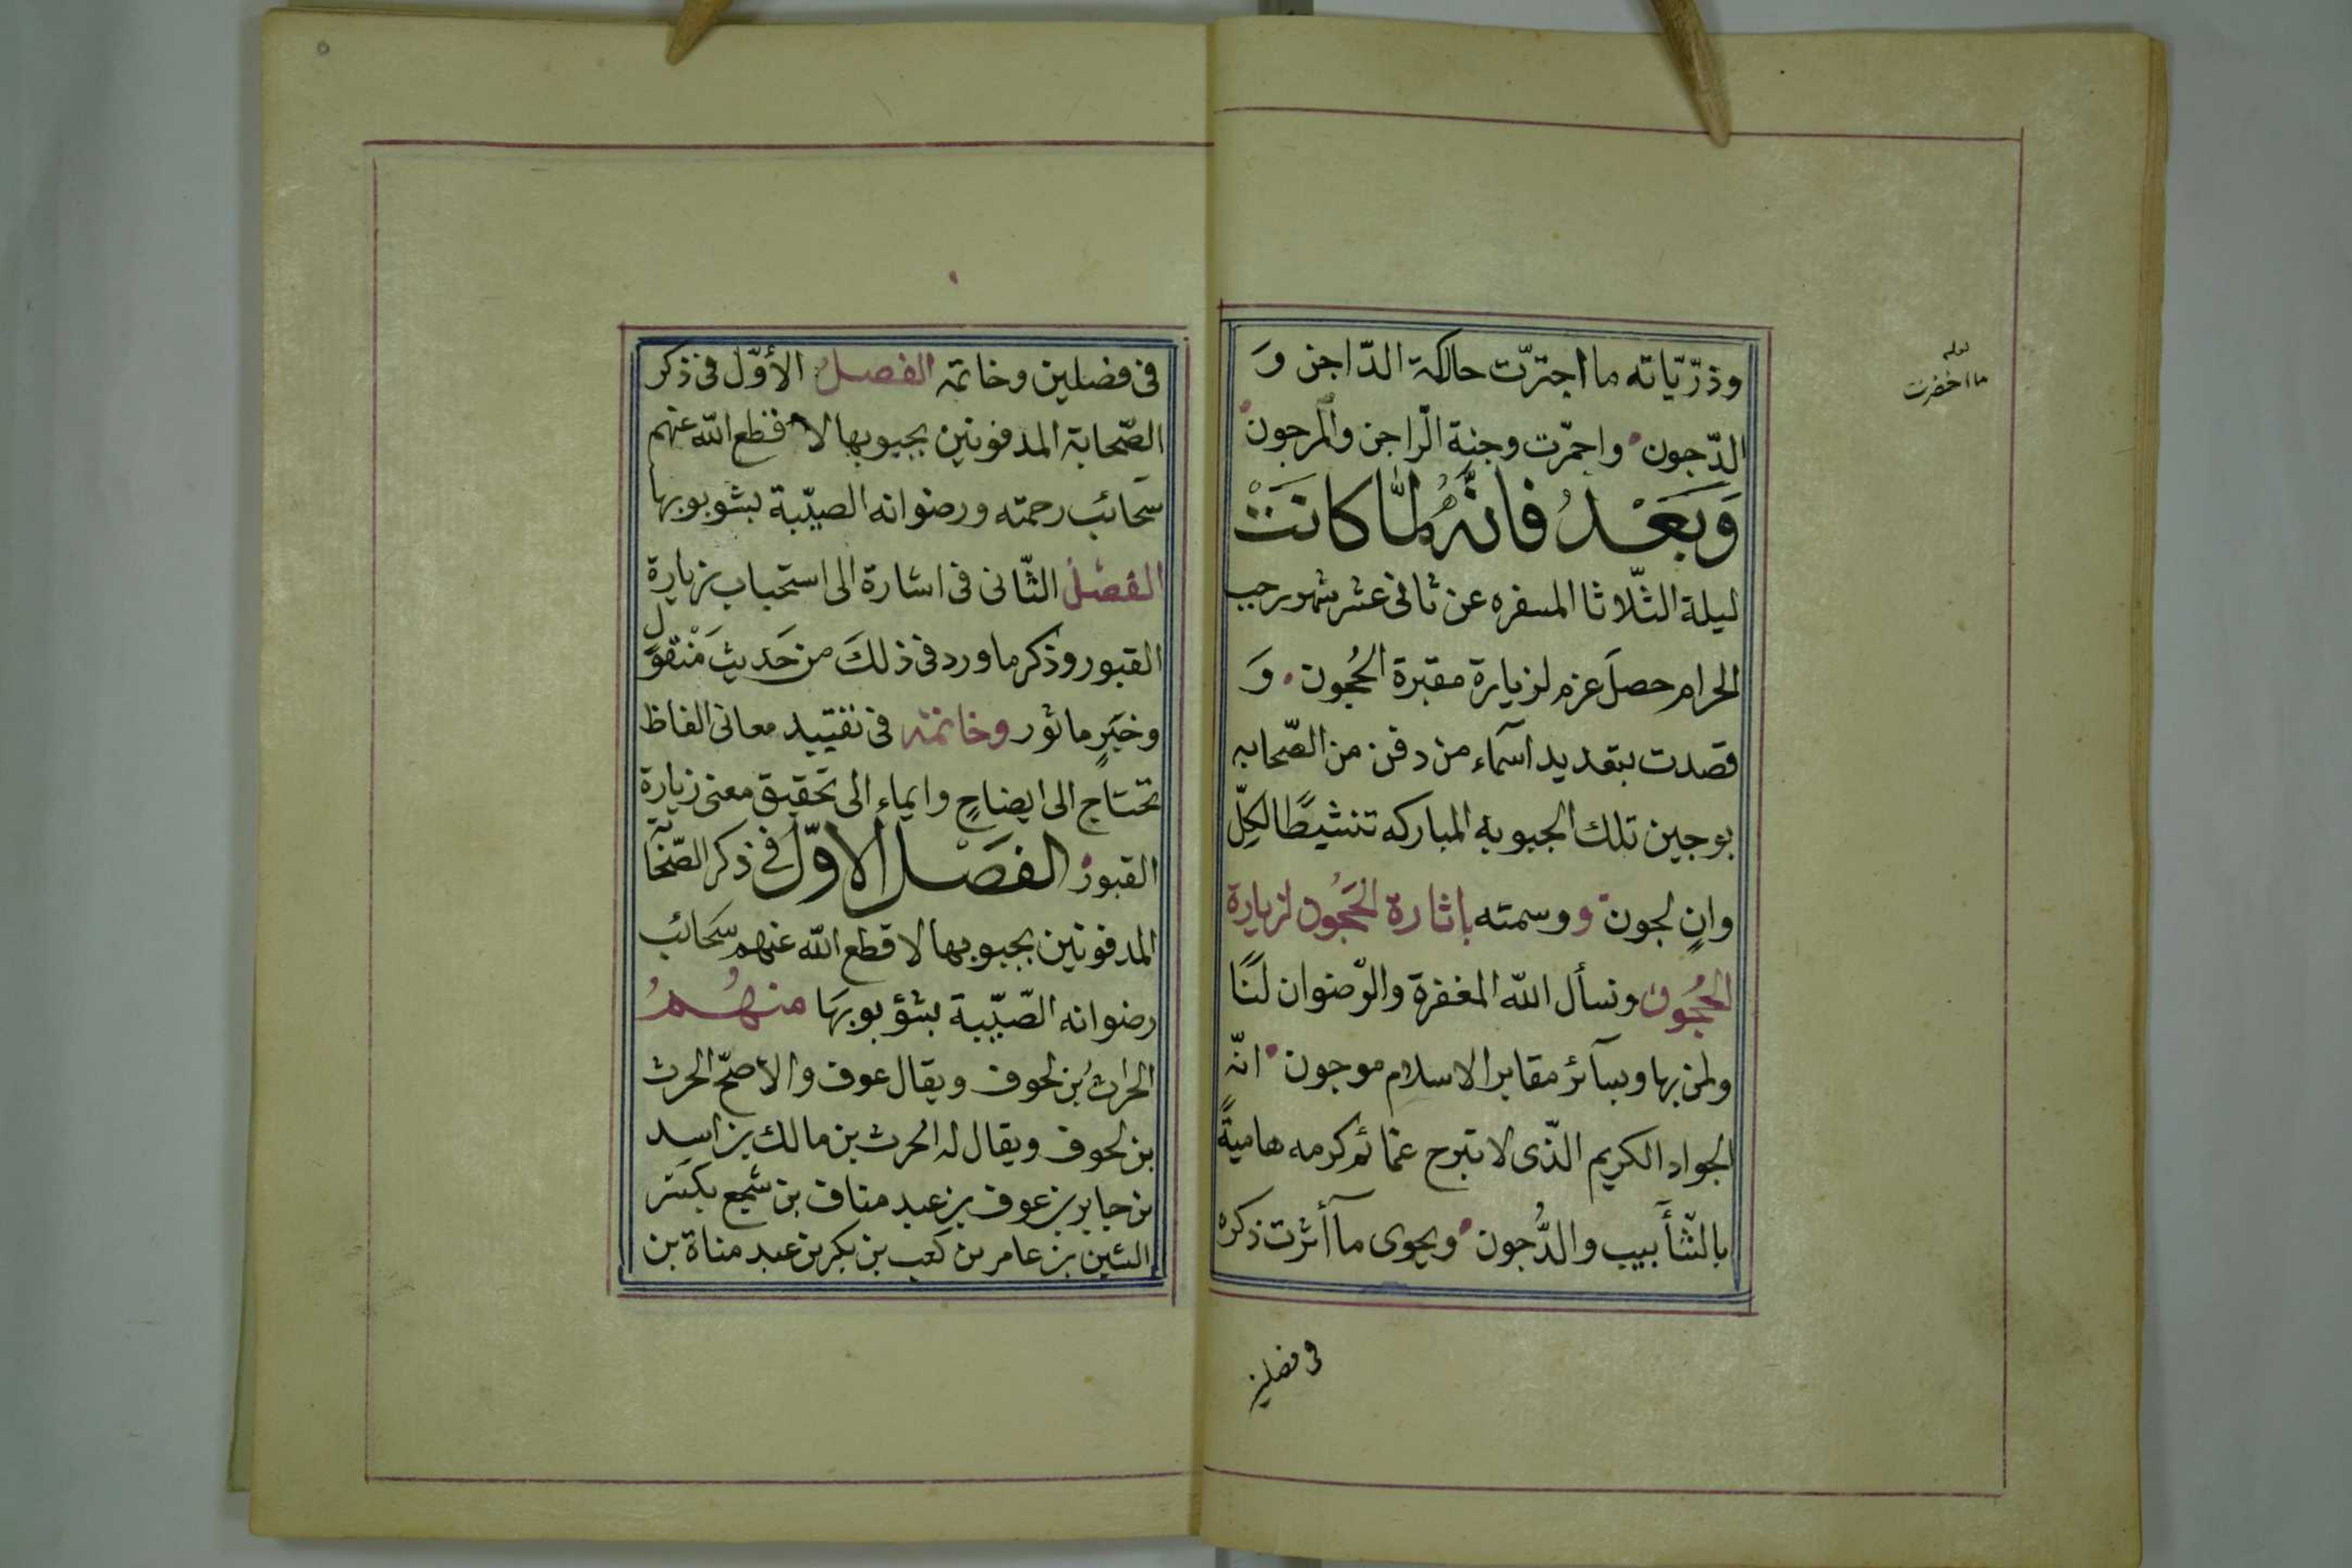 وذرّيّاته ما اجترّت حالكة الدّاجن وَ
الدّجون واحمرّت وجنة الرّاجن والمرجون
وَبَعْدُ فانّهُ لمّا كانَتْ
ليلة الثّلاثا المسفره عن ثانى عشر شهر رجب
الحرام حصلَ عزم لزيارة مقبرة الحُجون وَ
قصدت بتعديد اسمآء من دفن من الصّحابه
بوجين تلك الجبوبه المباركه تنشيطًا لكِلّ
وانٍ لجون ووسمته باثارة الحَجُون لزيارة
الحجُون ونسأل الله المغفرة والرّضوان لنَا
ولمن بها وبسآئر مقابر الاسلام موجون انّه
الجواد الكريم الّذى لا تبرح غمائم كرمه هاميةً
بالشّآبيب والدُّجون ويحوى مآ أثرت ذكره
فى فصلين
لوله
ما اخضرت
فى فصلين وخاتمة الفصلُ الأوّل فى ذكر
الصّحابة المدفونين بجبوبها لا قطع الله عنهم
سَحائب رحمته ورضوانه الصيّبة بشوبوبها
الفصْلُ الثّانى فى اشارة الى استحباب زيارة
القبور وذكر ما ورد فى ذلكَ من حَديثَ مَنْقوَل
وخبَرٍ ماثور وخاتمة فى تقييد معانى الفاظ
تحتاج الى ايضاحٍ وايماء الى تحقيق معنى زيارة
القبور الفصَل الاوّل فى ذكر الصّحآ
المدفونين بجبوبها لا قطع الله عنهم سَحائب
رضوانه الصّيّبة بشؤبوبهَا منهُمُ
الحرثُ بن لحوف ويقال عوف والاصحّ الحرث
بن لحوف ويقال له الحرث بن مالك بن اسد
بن جابر بن عوف بن عبد مناف بن شجع بكسَر
الشين بن عامر بن كعب بن بكر بن عبد مناة بن